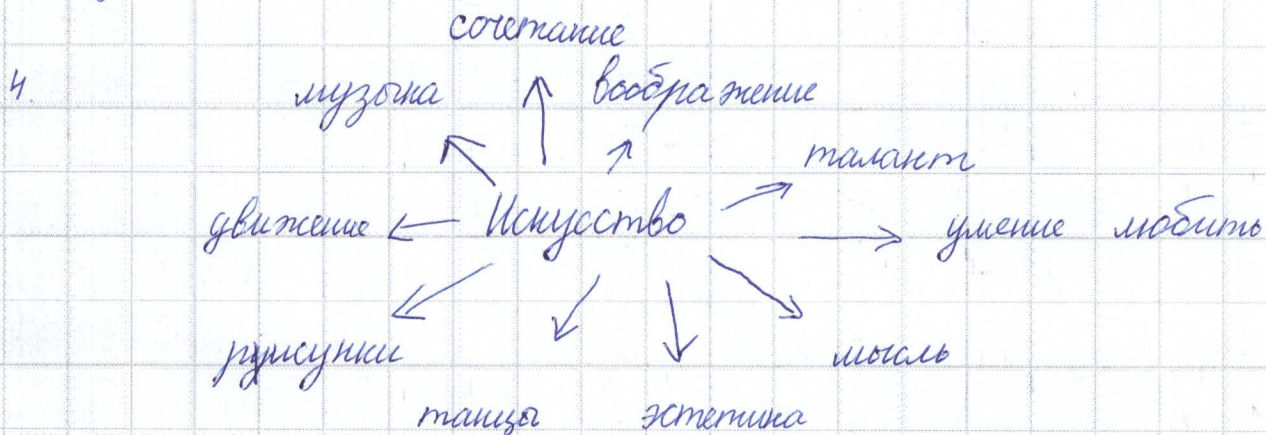 сочетание
4. музыка воображение
талант
движение Искусство умение любить
рисунки мысль
танцы эстетика